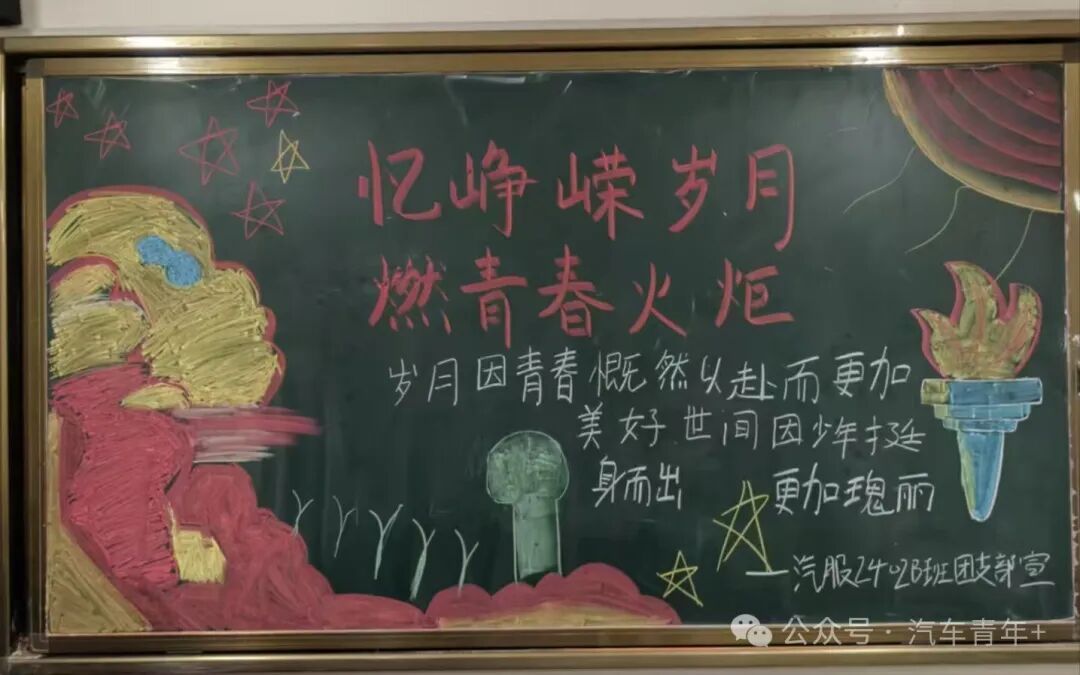 忆峥嵘岁月
燃青春火炬
岁月因青春慨然以赴而更加
美好 世间因少年挺
身而出 更加瑰丽
—汽服2402B班团支部宣
公众号·汽车青年+